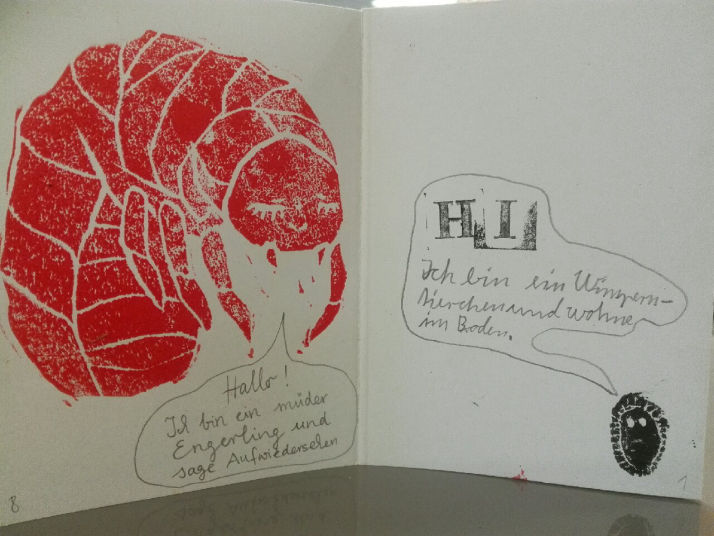 Hallo!
Ich bin ein müder
Engerling und
sage Aufwiedersehen
8
HI
Ich bin ein Wimpern-
tierchen und wohne
im Boden.
1